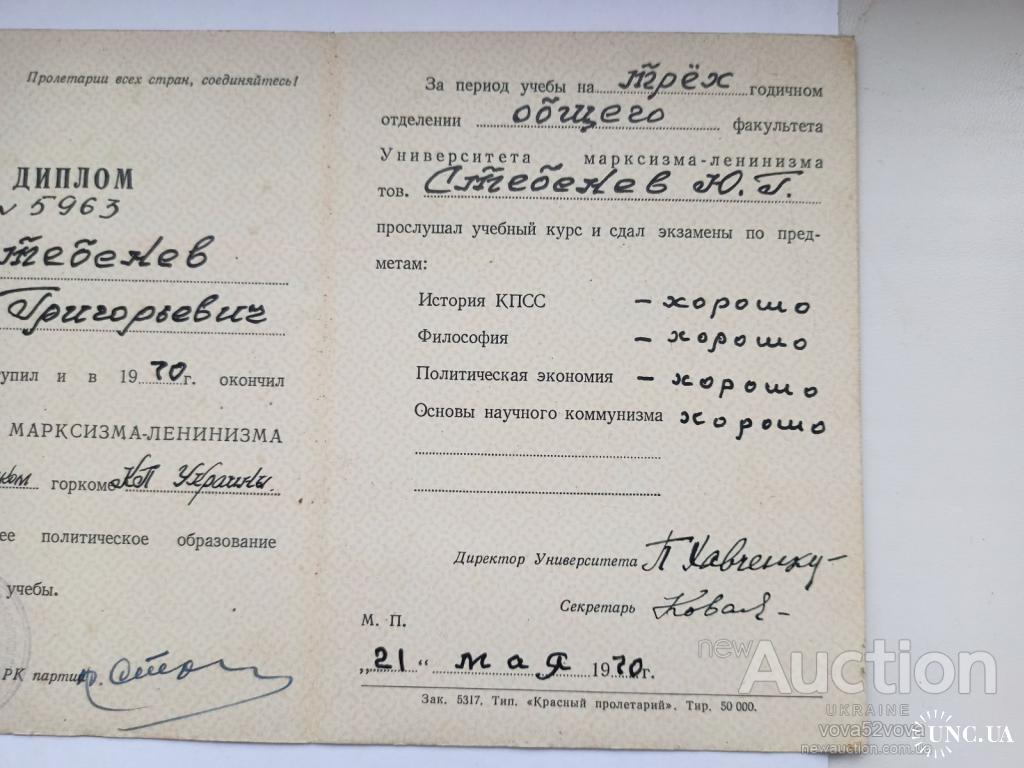 Пролетарии всех стран, соединяйтесь!
ДИПЛОМ
№ 5963
тебенев
Григорьевич
тупил и в 1970 г. окончил
МАРКСИЗМА-ЛЕНИНИЗМА
ком горкоме КП Украины.
ее политическое образование
учебы.
РК партии
За период учебы на трёх годичном
отделении общего факультета
Университета марксизма-ленинизма
тов. Стебенев Ю.Г.
прослушал учебный курс и сдал экзамены по пред-
метам:
История КПСС – хорошо
Философия – хорошо
Политическая экономия – хорошо
Основы научного коммунизма хорошо
Директор Университета
Секретарь Коваль
М. П.
„21“ мая 1970 г.
Зак. 5317. Тип. «Красный пролетарий». Тир. 50 000.
newAuction
UKRAINE
vova52vova
newauction.com.ua
UNC.UA